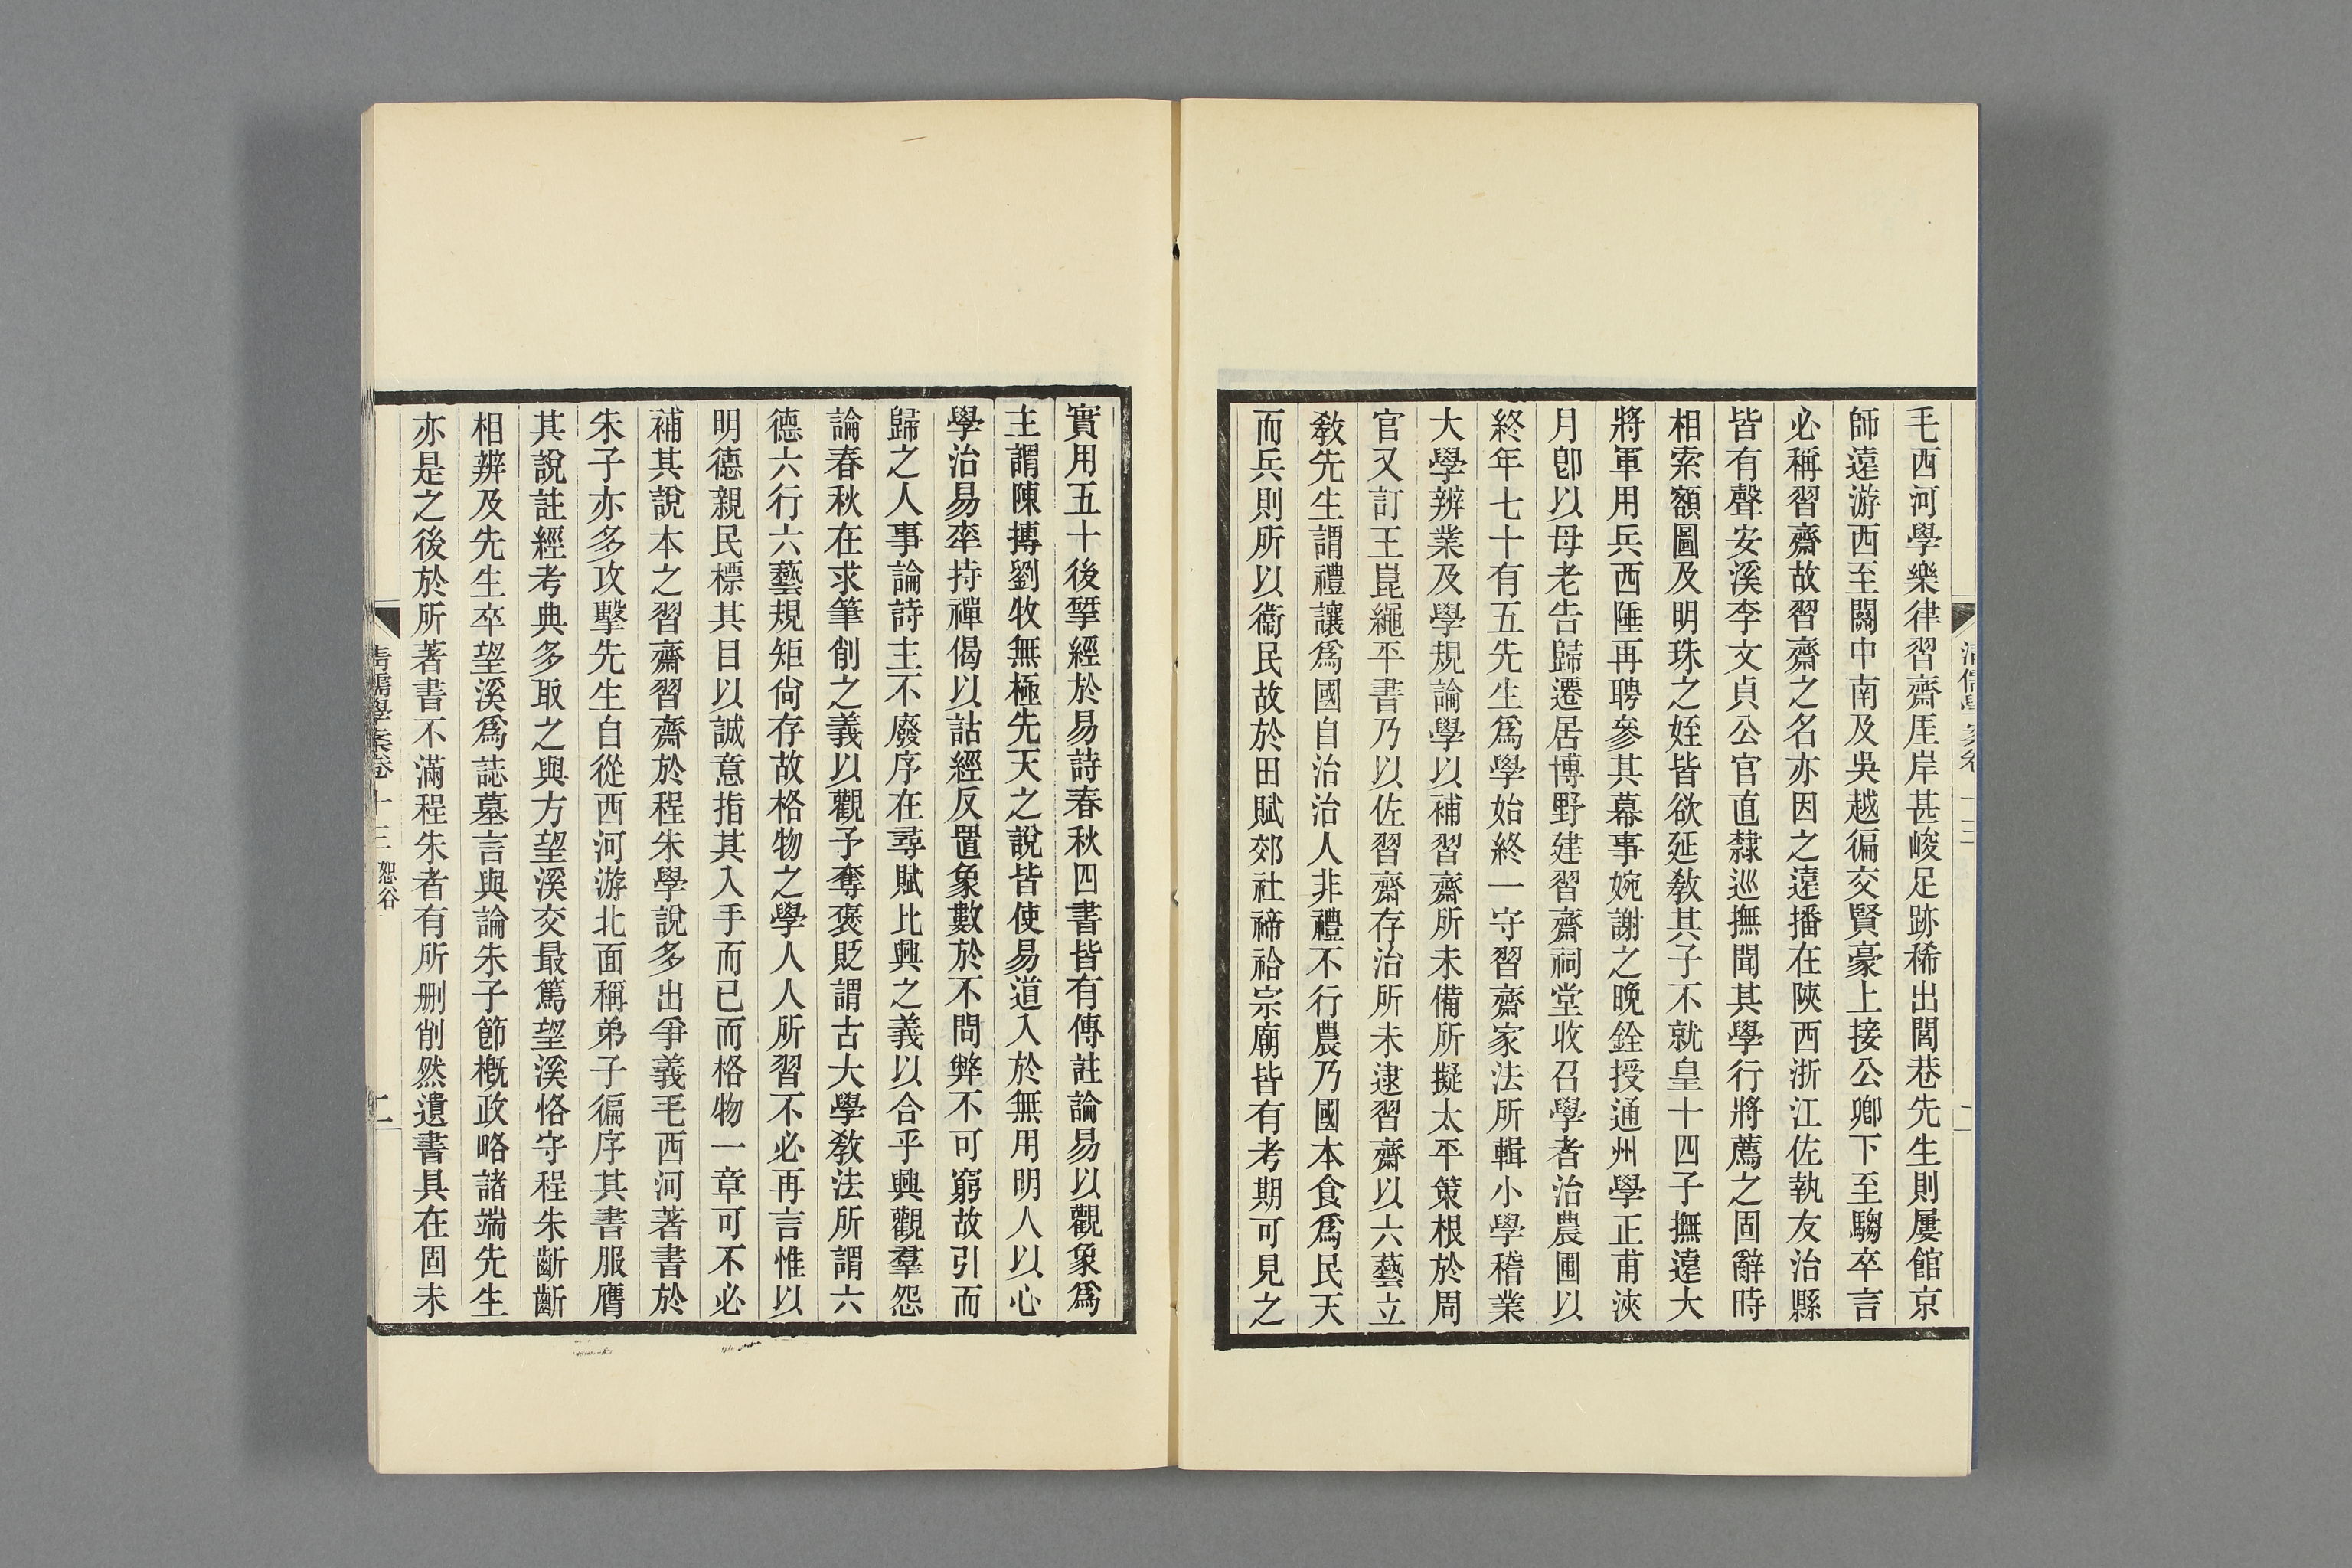 毛西河學樂律習齋厓岸甚峻足跡稀出閭巷先生則屢館京
師遠游西至關中南及吳越徧交賢豪上接公卿下至騶卒言
必稱習齋故習齋之名亦因之遠播在陝西浙江佐執友治縣
皆有聲安溪李文貞公官直隸巡撫聞其學行將薦之固辭時
相索額圖及明珠之姪皆欲延敎其子不就皇十四子撫遠大
將軍用兵西陲再聘參其幕事婉謝之晚銓授通州學正甫浹
月卽以母老告歸遷居博野建習齋祠堂收召學者治農圃以
終年七十有五先生爲學始終一守習齋家法所輯小學稽業
大學辨業及學規論學以補習齋所未備所擬太平策根於周
官又訂王崑繩平書乃以佐習齋存治所未逮習齋以六藝立
敎先生謂禮讓爲國自治治人非禮不行農乃國本食爲民天
而兵則所以衞民故於田賦郊社禘祫宗廟皆有考期可見之
實用五十後揅經於易詩春秋四書皆有傳註論易以觀象爲
主謂陳摶劉牧無極先天之說皆使易道入於無用明人以心
學治易率持禪偈以詁經反置象數於不問弊不可窮故引而
歸之人事論詩主不廢序在尋賦比興之義以合乎興觀羣怨
論春秋在求筆削之義以觀予奪褒貶謂古大學敎法所謂六
德六行六藝規矩尙存故格物之學人人所習不必再言惟以
明德親民標其目以誠意指其入手而已而格物一章可不必
補其說本之習齋習齋於程朱學說多出爭義毛西河著書於
朱子亦多攻擊先生自從西河游北面稱弟子徧序其書服膺
其說註經考典多取之與方望溪交最篤望溪恪守程朱齗齗
相辨及先生卒望溪爲誌墓言與論朱子節槪政略諸端先生
亦是之後於所著書不滿程朱者有所刪削然遺書具在固未
清儒學案卷十三 恕谷 二